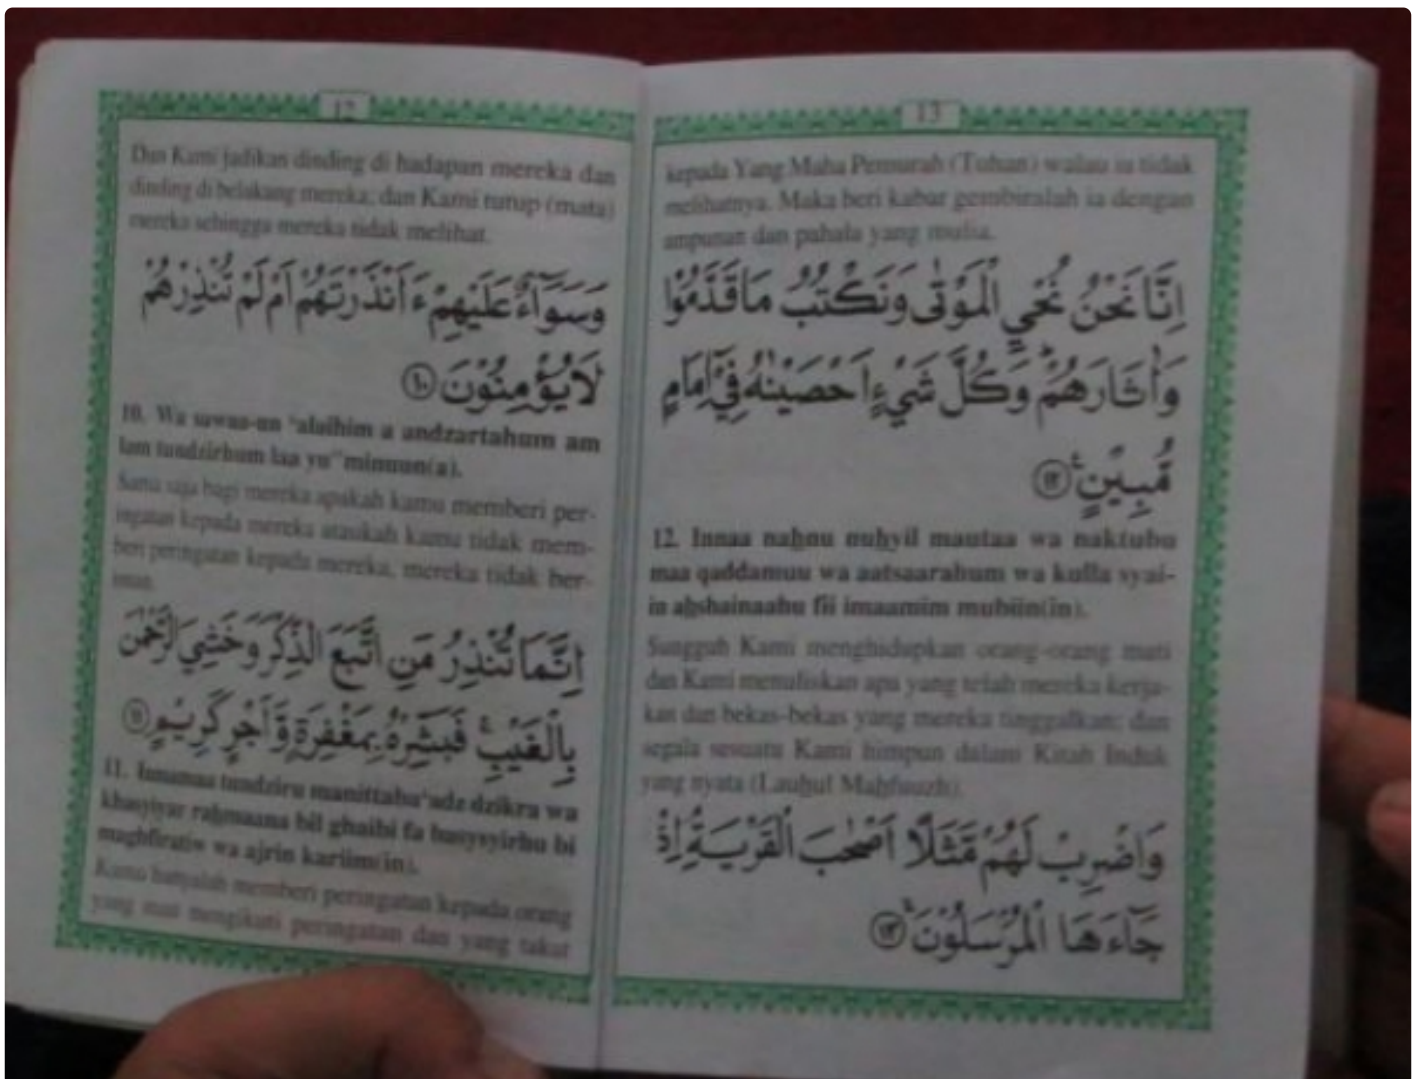 12
Dan Kami jadikan dinding di hadapan mereka dan
dinding di belakang mereka; dan Kami tutup (mata)
mereka sehingga mereka tidak melihat.
وَسَوَاۤءٌ عَلَيْهِمْ ءَاَنْذَرْتَهُمْ اَمْ لَمْ تُنْذِرْهُمْ
لَا يُؤْمِنُوْنَ ۝١٠
10. Wa sawaa-un ‘alaihim a andzartahum am
lam tundzirhum laa yu’’minuun(a).
Sama saja bagi mereka apakah kamu memberi per-
ingatan kepada mereka ataukah kamu tidak mem-
beri peringatan kepada mereka, mereka tidak ber-
iman.
اِنَّمَا تُنْذِرُ مَنِ اتَّبَعَ الذِّكْرَ وَخَشِيَ الرَّحْمٰنَ
بِالْغَيْبِۚ فَبَشِّرْهُ بِمَغْفِرَةٍ وَّاَجْرٍ كَرِيْمٍ ۝١١
11. Innamaa tundziru manittaba‘adz dzikra wa
khasyiyar raḥmaana bil ghaibi fa basysyirhu bi
maghfiratiw wa ajrin kariim(in).
Kamu hanyalah memberi peringatan kepada orang
yang mau mengikuti peringatan dan yang takut
13
kepada Yang Maha Pemurah (Tuhan) walau ia tidak
melihatnya. Maka beri kabar gembiralah ia dengan
ampunan dan pahala yang mulia.
اِنَّا نَحْنُ نُحْيِ الْمَوْتٰى وَنَكْتُبُ مَا قَدَّمُوْا
وَاٰثَارَهُمْۗ وَكُلَّ شَيْءٍ اَحْصَيْنٰهُ فِيْٓ اِمَامٍ
مُّبِيْنٍۚ ۝١٢
12. Innaa naḥnu nuḥyil mautaa wa naktubu
maa qaddamuu wa aatsaarahum wa kulla syai-
in aḥshainaahu fii imaamim mubiin(in).
Sungguh Kami menghidupkan orang-orang mati
dan Kami menuliskan apa yang telah mereka kerja-
kan dan bekas-bekas yang mereka tinggalkan; dan
segala sesuatu Kami himpun dalam Kitab Induk
yang nyata (Lauḥul Maḥfuuzh).
وَاضْرِبْ لَهُمْ مَّثَلًا اَصْحٰبَ الْقَرْيَةِۘ اِذْ
جَاۤءَهَا الْمُرْسَلُوْنَۚ ۝١٣